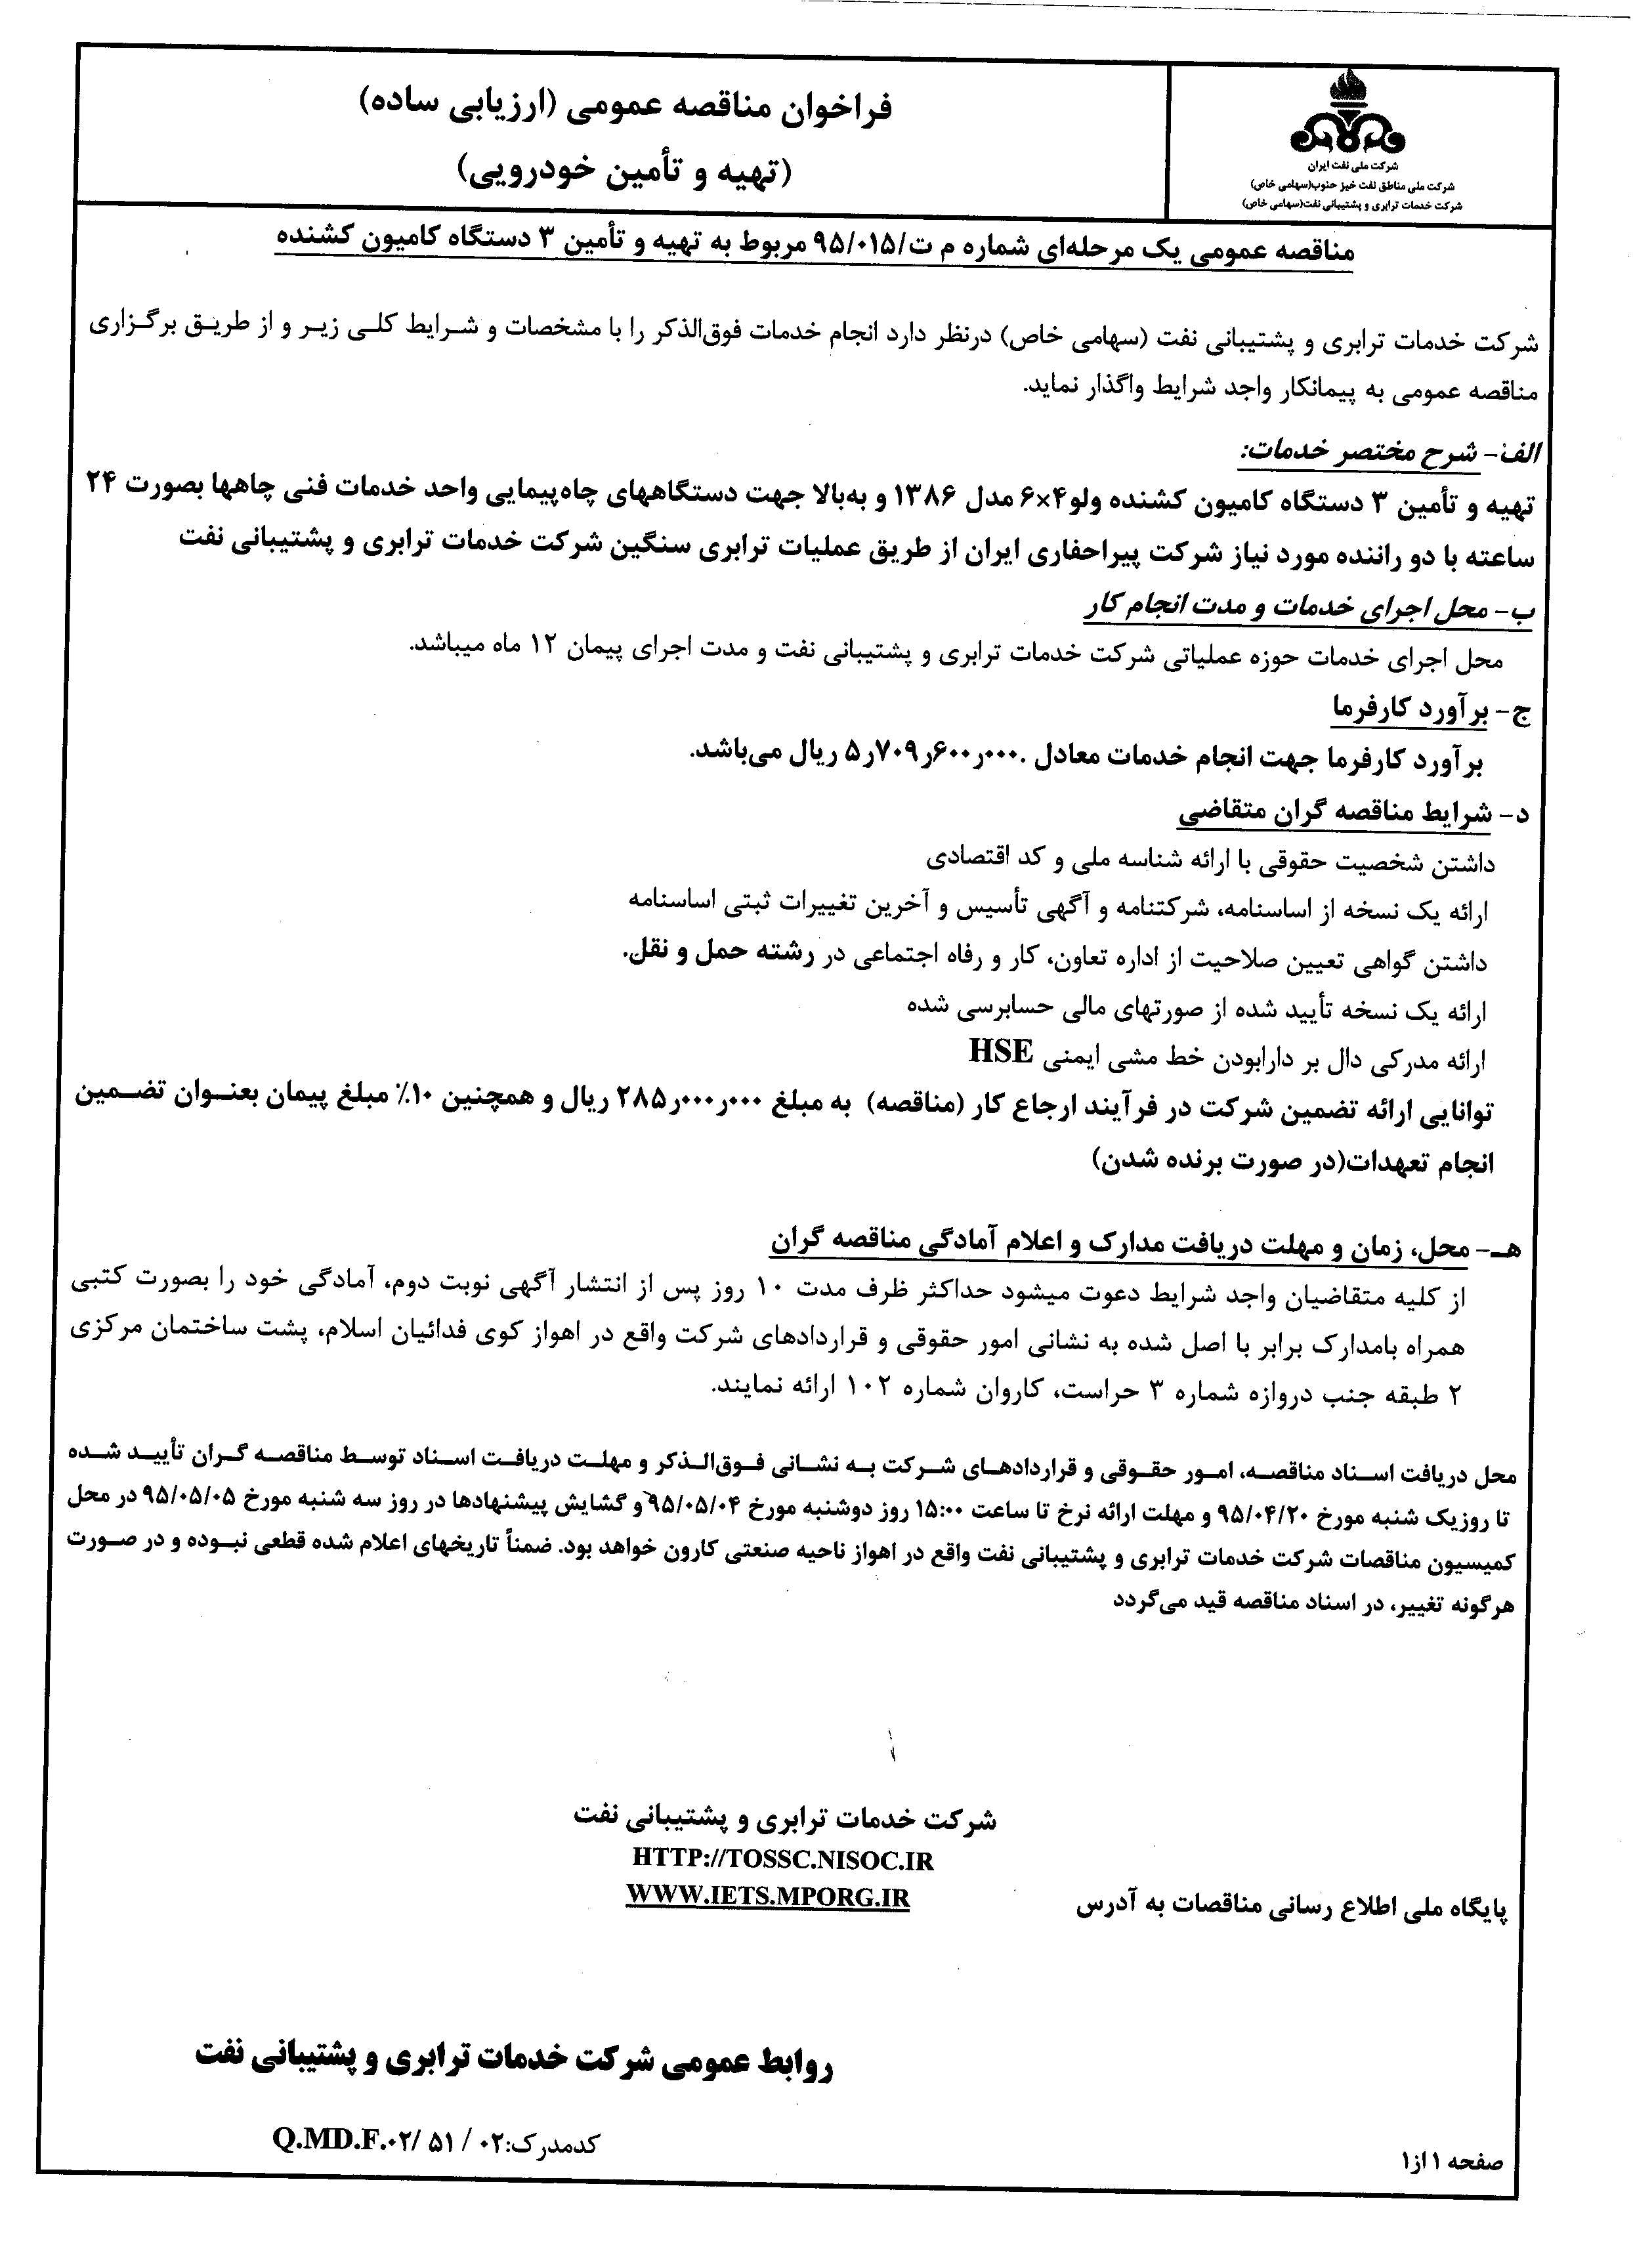 شرکت ملی نفت ایران
شرکت ملی مناطق نفت خیز جنوب(سهامی خاص)
شرکت خدمات ترابری و پشتیبانی نفت(سهامی خاص)
فراخوان مناقصه عمومی (ارزیابی ساده)
(تهیه و تأمین خودرویی)
مناقصه عمومی یک مرحله‌ای شماره م ت/۹۵/۰۱۵ مربوط به تهیه و تأمین ۳ دستگاه کامیون کشنده
شرکت خدمات ترابری و پشتیبانی نفت (سهامی خاص) درنظر دارد انجام خدمات فوق‌الذکر را با مشخصات و شرایط کلی زیر و از طریق برگزاری
مناقصه عمومی به پیمانکار واجد شرایط واگذار نماید.
الف- شرح مختصر خدمات:
تهیه و تأمین ۳ دستگاه کامیون کشنده ولو۴×۶ مدل ۱۳۸۶ و به‌بالا جهت دستگاههای چاه‌پیمایی واحد خدمات فنی چاهها بصورت ۲۴
ساعته با دو راننده مورد نیاز شرکت پیراحفاری ایران از طریق عملیات ترابری سنگین شرکت خدمات ترابری و پشتیبانی نفت
ب- محل اجرای خدمات و مدت انجام کار
محل اجرای خدمات حوزه عملیاتی شرکت خدمات ترابری و پشتیبانی نفت و مدت اجرای پیمان ۱۲ ماه میباشد.
ج- برآورد کارفرما
برآورد کارفرما جهت انجام خدمات معادل .۰۰۰ر۶۰۰ر۷۰۹ر۵ ریال می‌باشد.
د- شرایط مناقصه گران متقاضی
داشتن شخصیت حقوقی با ارائه شناسه ملی و کد اقتصادی
ارائه یک نسخه از اساسنامه، شرکتنامه و آگهی تأسیس و آخرین تغییرات ثبتی اساسنامه
داشتن گواهی تعیین صلاحیت از اداره تعاون، کار و رفاه اجتماعی در رشته حمل و نقل.
ارائه یک نسخه تأیید شده از صورتهای مالی حسابرسی شده
ارائه مدرکی دال بر دارابودن خط مشی ایمنی HSE
توانایی ارائه تضمین شرکت در فرآیند ارجاع کار (مناقصه) به مبلغ ۰۰۰ر۰۰۰ر۲۸۵ ریال و همچنین ۱۰٪ مبلغ پیمان بعنوان تضمین
انجام تعهدات(در صورت برنده شدن)
هـ- محل، زمان و مهلت دریافت مدارک و اعلام آمادگی مناقصه گران
از کلیه متقاضیان واجد شرایط دعوت میشود حداکثر ظرف مدت ۱۰ روز پس از انتشار آگهی نوبت دوم، آمادگی خود را بصورت کتبی
همراه بامدارک برابر با اصل شده به نشانی امور حقوقی و قراردادهای شرکت واقع در اهواز کوی فدائیان اسلام، پشت ساختمان مرکزی
۲ طبقه جنب دروازه شماره ۳ حراست، کاروان شماره ۱۰۲ ارائه نمایند.
محل دریافت اسناد مناقصه، امور حقوقی و قراردادهای شرکت به نشانی فوق‌الذکر و مهلت دریافت اسناد توسط مناقصه گران تأیید شده
تا روزیک شنبه مورخ ۹۵/۰۴/۲۰ و مهلت ارائه نرخ تا ساعت ۱۵:۰۰ روز دوشنبه مورخ ۹۵/۰۵/۰۴و گشایش پیشنهادها در روز سه شنبه مورخ ۹۵/۰۵/۰۵ در محل
کمیسیون مناقصات شرکت خدمات ترابری و پشتیبانی نفت واقع در اهواز ناحیه صنعتی کارون خواهد بود. ضمناً تاریخهای اعلام شده قطعی نبوده و در صورت
هرگونه تغییر، در اسناد مناقصه قید می‌گردد
شرکت خدمات ترابری و پشتیبانی نفت
HTTP://TOSSC.NISOC.IR
پایگاه ملی اطلاع رسانی مناقصات به آدرس WWW.IETS.MPORG.IR
روابط عمومی شرکت خدمات ترابری و پشتیبانی نفت
کدمدرک:Q.MD.F.۰۲/ ۵۱ / ۰۲
صفحه ۱ از۱